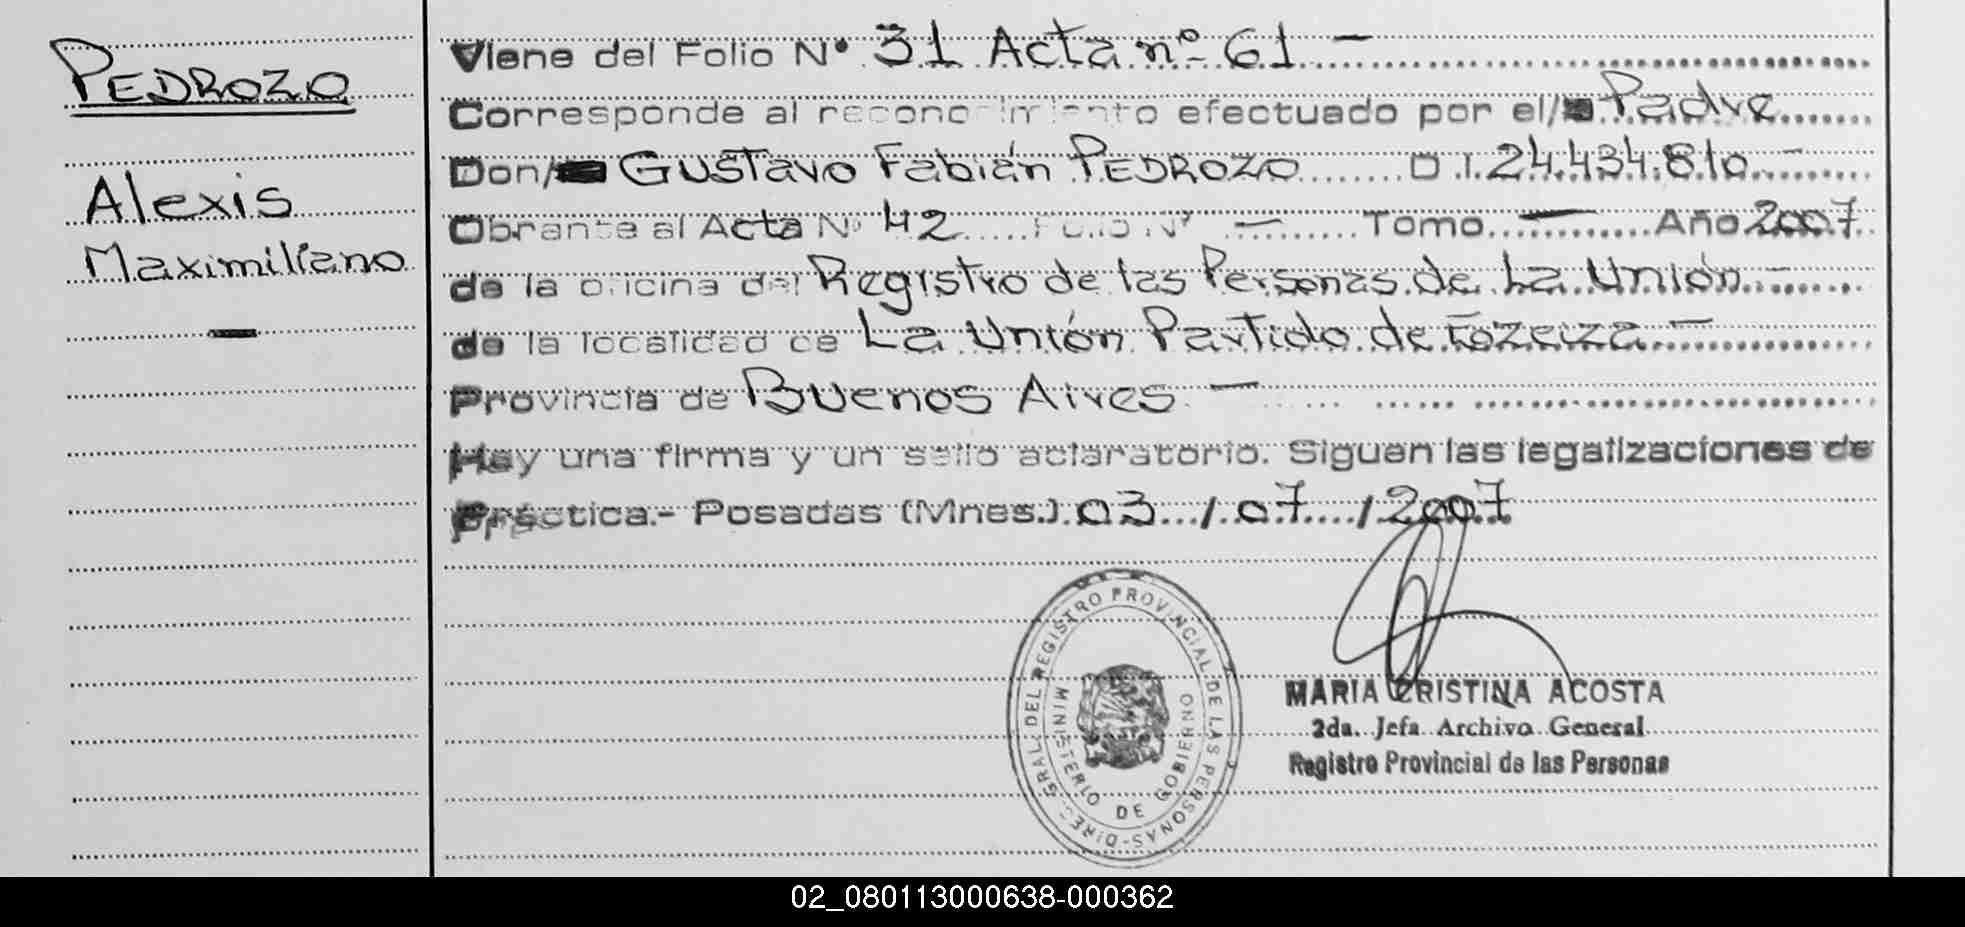 PEDROZO
Alexis
Maximiliano
—
Viene del Folio Nº 31 Acta nº 61 —
Corresponde al reconocimiento efectuado por el/ Padre
Don/ Gustavo Fabián PEDROZO D.I. 24.434.810.—
Obrante al Acta Nº 42 Folio Nº — Tomo — Año 2007
de la oficina del Registro de las Personas de La Unión —
de la localidad de La Unión Partido de Ezeiza —
Provincia de Buenos Aires —
Hay una firma y un sello aclaratorio. Siguen las legalizaciones de
Práctica.- Posadas (Mnes.) 03 / 07 / 2007
GRAL. DEL REGISTRO PROVINCIAL DE LAS PERSONAS - DIREC.
MINISTERIO DE GOBIERNO
MARIA CRISTINA ACOSTA
2da. Jefa Archivo General
Registro Provincial de las Personas
02_080113000638-000362